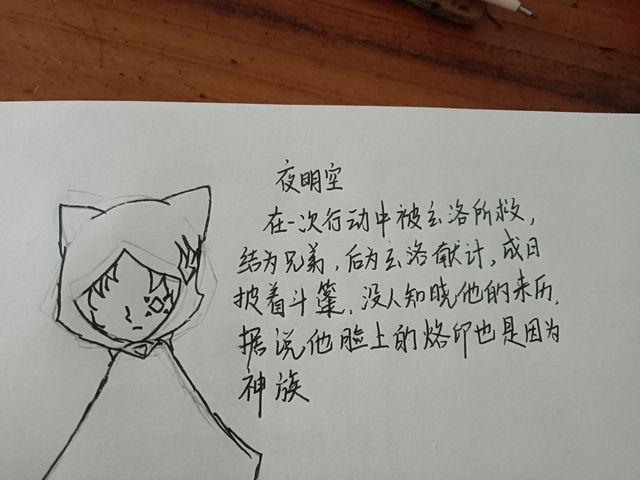 夜明空
在一次行动中被玄洛所救，
结为兄弟，后为玄洛献计，成日
披着斗篷，没人知晓他的来历，
据说他脸上的烙印也是因为
神族